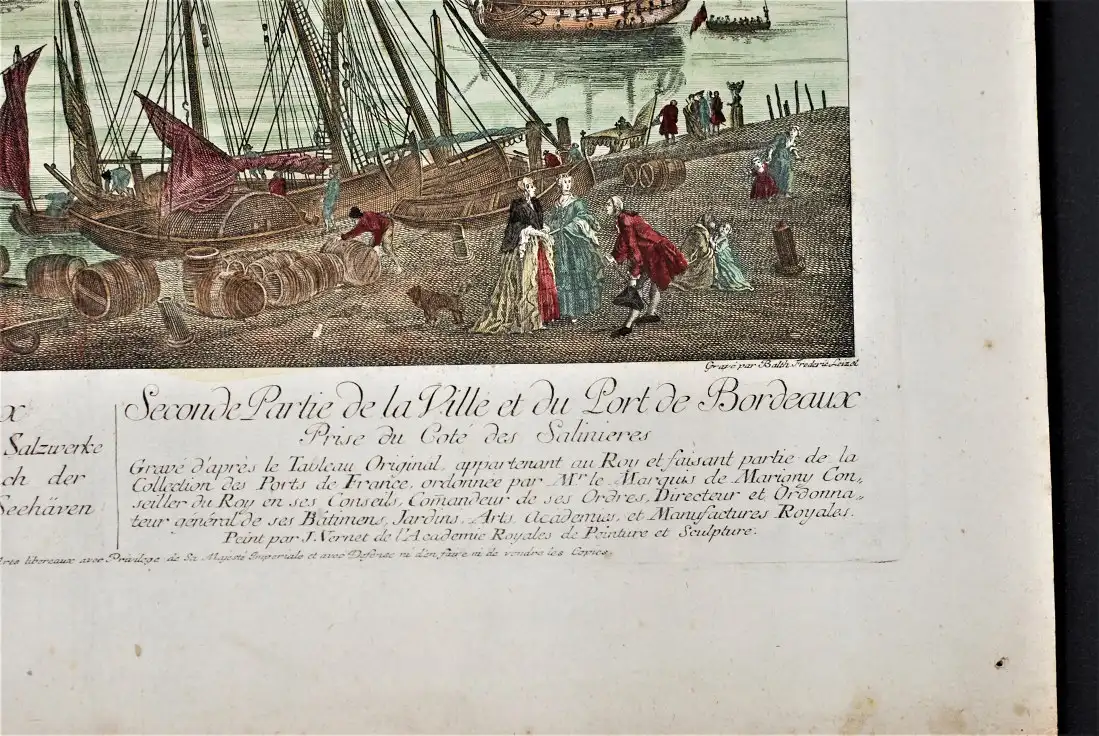 Gravé par Balth Frederic Leizel
x
Salzwerke
ch der
Seehäven
Seconde Partie de la Ville et du Port de Bordeaux
Prise du Coté des Salinieres
Gravé d'après le Tableau Original, appartenant au Roy et faisant partie de la
Collection des Ports de France, ordonnée par Mr. le Marquis de Marigny Con„
seiller du Roy en ses Conseils, Comandeur de ses Ordres, Directeur et Ordonna„
teur général de ses Bâtimens, Jardins, Arts, Academies, et Manufactures Royales.
Peint par J. Vernet de l'Academie Royales de Peinture et Sculpture.
Arts libereaux avec Privilege de Sa Majesté Imperiale et avec Defense ni d'en faire ni de vendre les Copies.